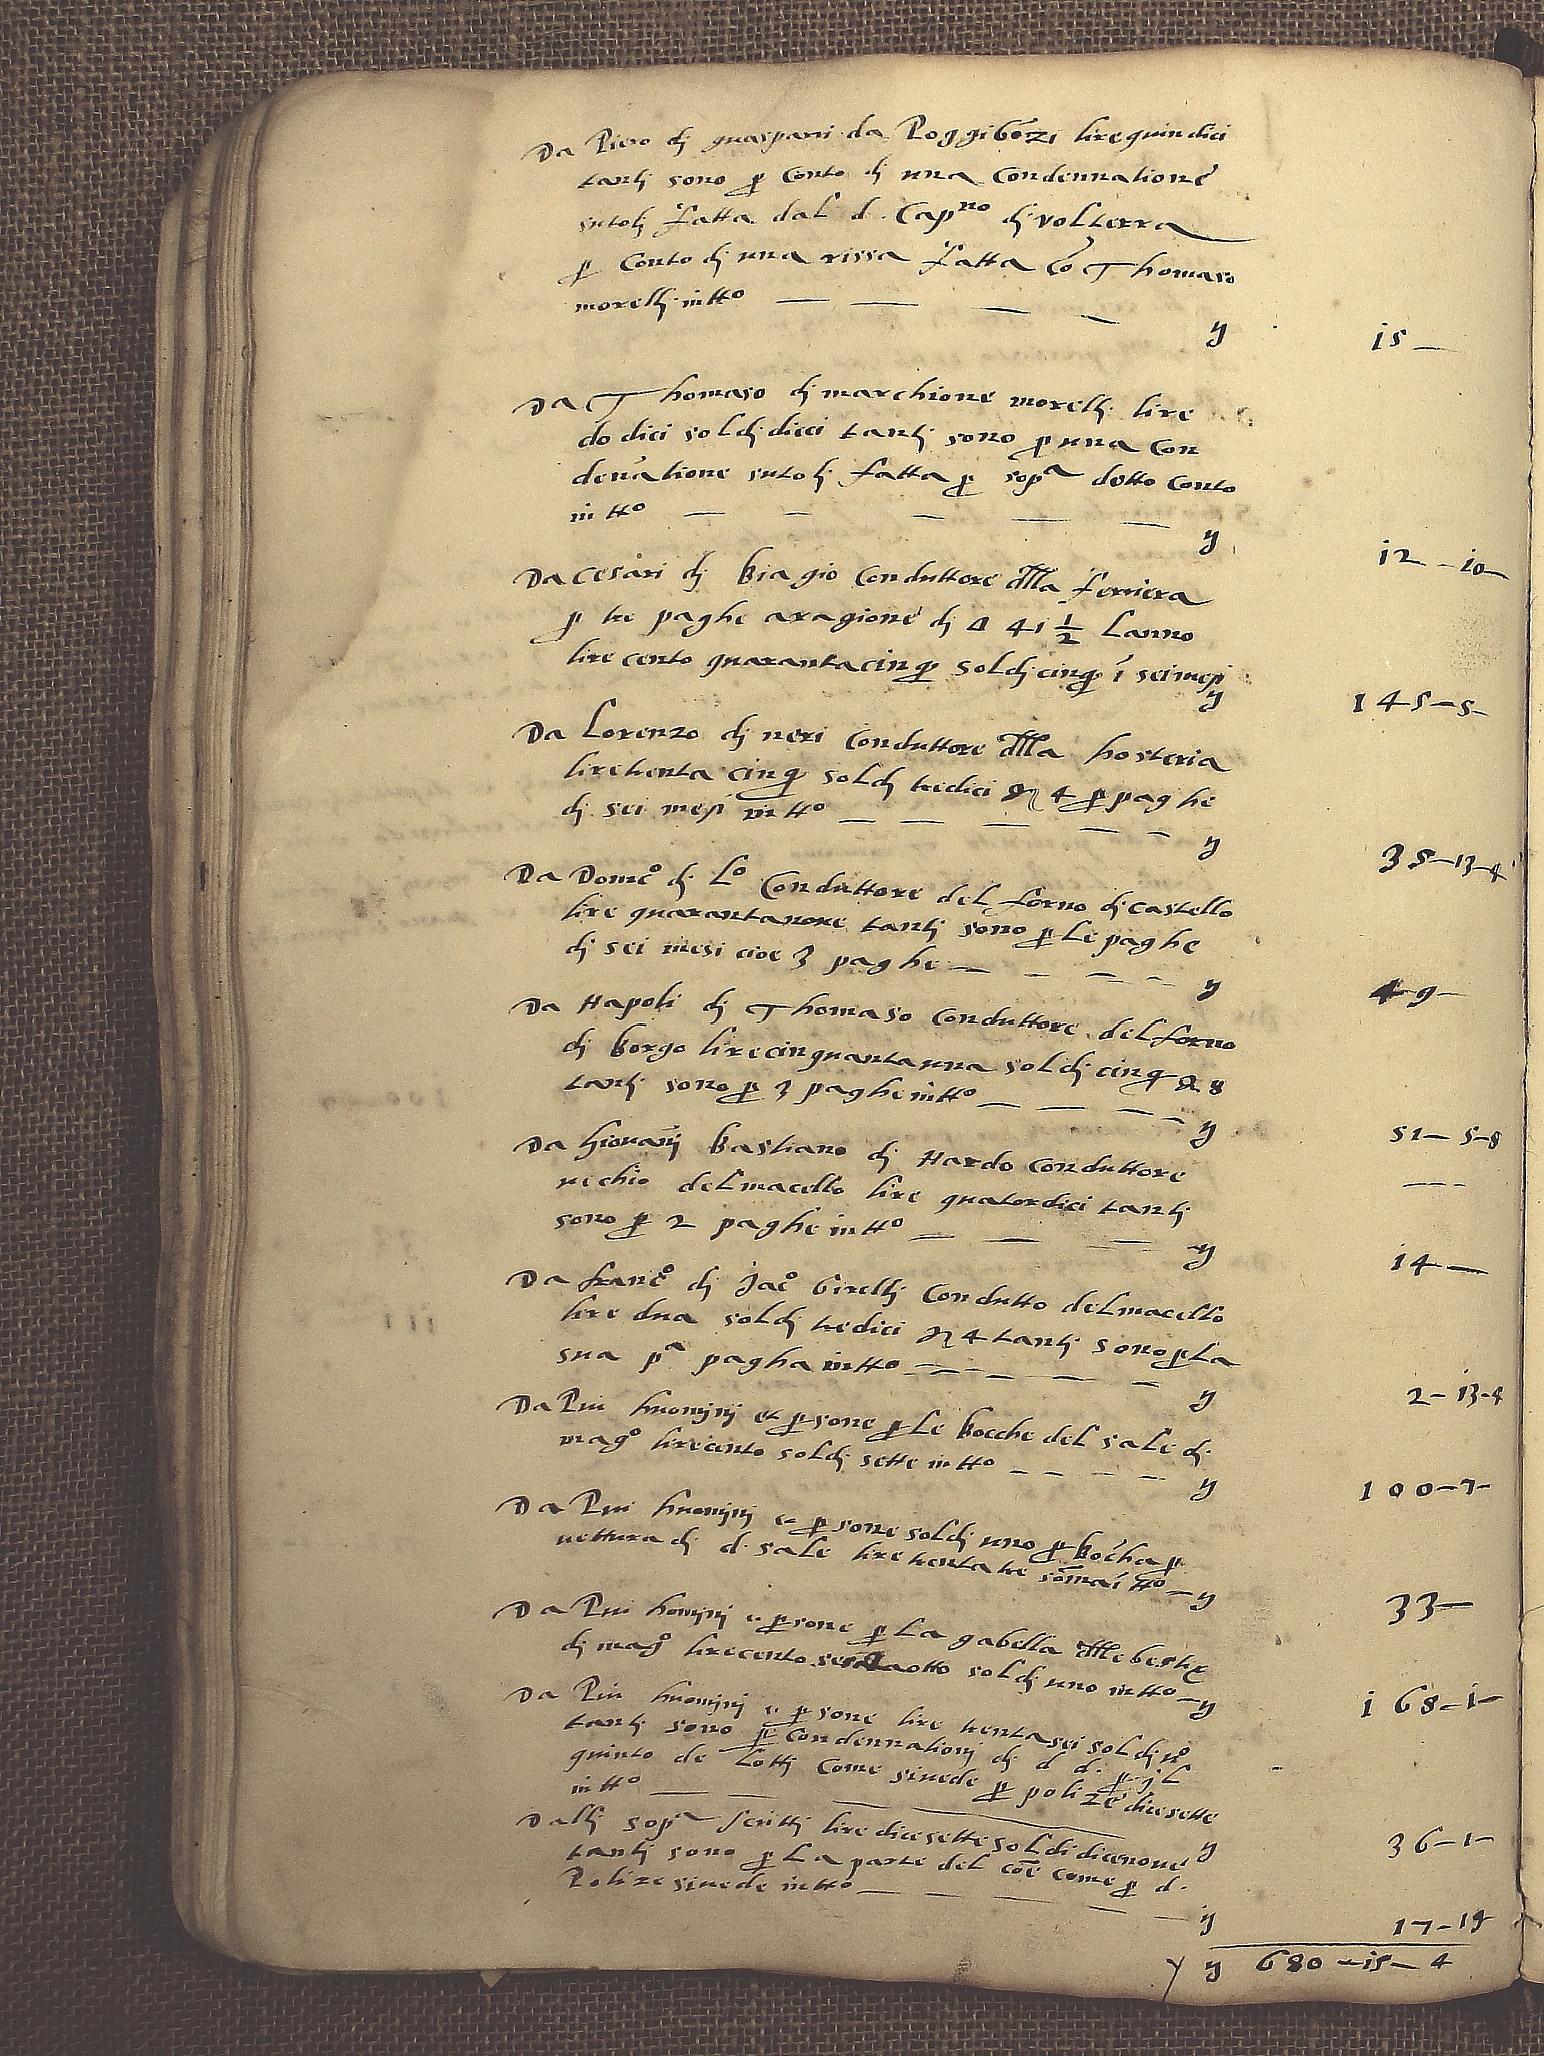 Da Piero dj guasparri da Poggibōzi lire quindici
tantj sono ꝑ Conto dj una Condennatione
sutolj fatta dal d. Capno dj volterra
ꝑ Conto dj una rissa fatta cō Thomaso
morellj in tto — — — — y 15 —
Da Thomaso dj marchione morellj lire
dodici soldj dieci tantj sono ꝑ una Con
dennatione sutolj fatta ꝑ sopa detto Conto
in tto — — — — — y 12 — 10 —
Da Cesari dj Biagio Conduttore dlla ferriera
ꝑ tre paghe aragione dj Δ 41 1/2 Lanno
lire cento quarantacinqꝫ soldj cinqꝫ ī sei mesi y 145 — 5 —
Da Lorenzo dj neri Conduttore dlla hosteria
lire trenta cinqꝫ soldj tredici ₰ 4 ꝑ paghe
dj sei mesi in tto — — — — — y 35 — 13 — 4
Da Domco dj Lo Conduttore del forno dj castello
lire quarantanove tantj sono ꝑ le paghe
dj sei mesi cioe 3 paghe — — — — y 49 —
Da Napoli dj Thomaso Conduttore del forno
dj Borgo lire cinquantauna soldj cinqꝫ ₰ 8
tantj sono ꝑ 3 paghe in tto — — — — y 51 — 5 — 8
Da Giovannj Bastiano dj Nardo Conduttore
vechio del macello lire quatordici tantj
sono ꝑ 2 paghe in tto — — — y 14 —
Da Franco dj Jaco Girellj Condutto del macello
lire dua soldj tredici ₰ 4 tantj sono ꝑ la
sua pa pagha in tto — — — — y 2 — 13 — 4
Da Piu huominj et ꝑsone ꝑ le bocche del sale dj
mago lire cento soldj sette in tto — — — — y 100 — 7 —
Da Piu huominj e ꝑsone soldj uno ꝑ bocha ꝑ
vettura dj d. sale lire trenta tre sōma ī tto — y 33 —
Da Piu hominj e ꝑsone ꝑ la gabella dlle bestie
dj mago lire cento otto soldj uno in tto — y 168 — 1 —
Da Piu huominj e ꝑsone lire trentasei soldj
tantj sono ꝑ Condennationj dj d d. ꝑ il
quinto de Lottj Come sivede ꝑ polize dicesette
in tto — — — y 36 — 1 —
Dallj sopa scrittj lire dicesette soldi dicenove
tantj sono ꝑ la parte del coē come ꝑ d.
Polize sivede in tto — — — — y 17 — 19
y 680 — 15 — 4